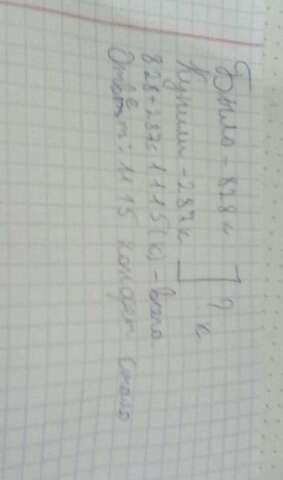 Было - 828 к
Купили - 287 к ? к
828+287=1115(к) - всего
Ответ: 1115 конфет стало